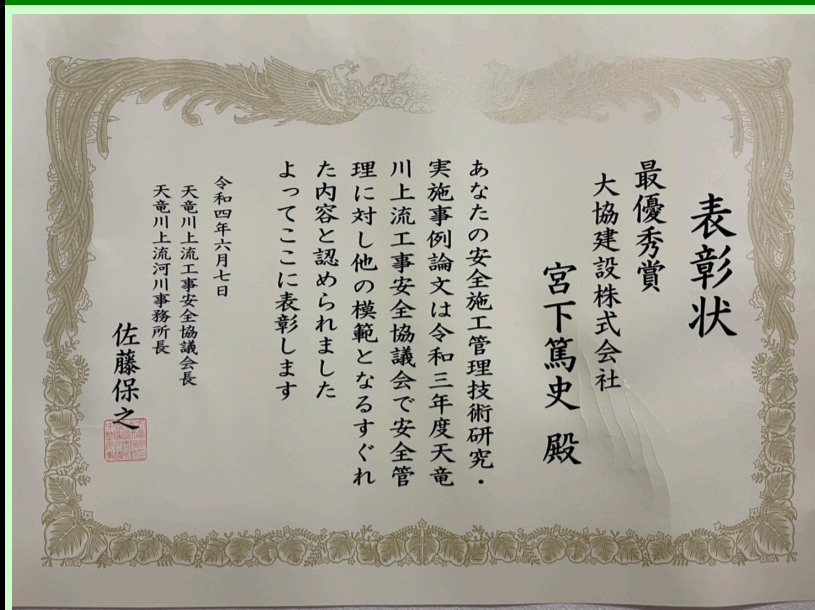 表彰状
最優秀賞
大協建設株式会社
宮下篤史 殿
あなたの安全施工管理技術研究・
実施事例論文は令和三年度天竜
川上流工事安全協議会で安全管
理に対し他の模範となるすぐれ
た内容と認められました
よってここに表彰します
令和四年六月七日
天竜川上流工事安全協議会長
天竜川上流河川事務所長
佐藤保之